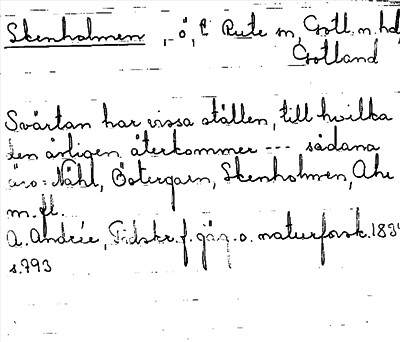 Skenholmen, -ö, i Rute sn, Gotl. n. hd,
Gotland
Svärtan har vissa ställen, till hvilka
den årligen återkommer --- sådana
äro: Nähl, Östergarn, Skenholmen, Ahr
m. fl.
A. Andrée, Tidskr. f. jäg. o. naturforsk. 1834
s. 793